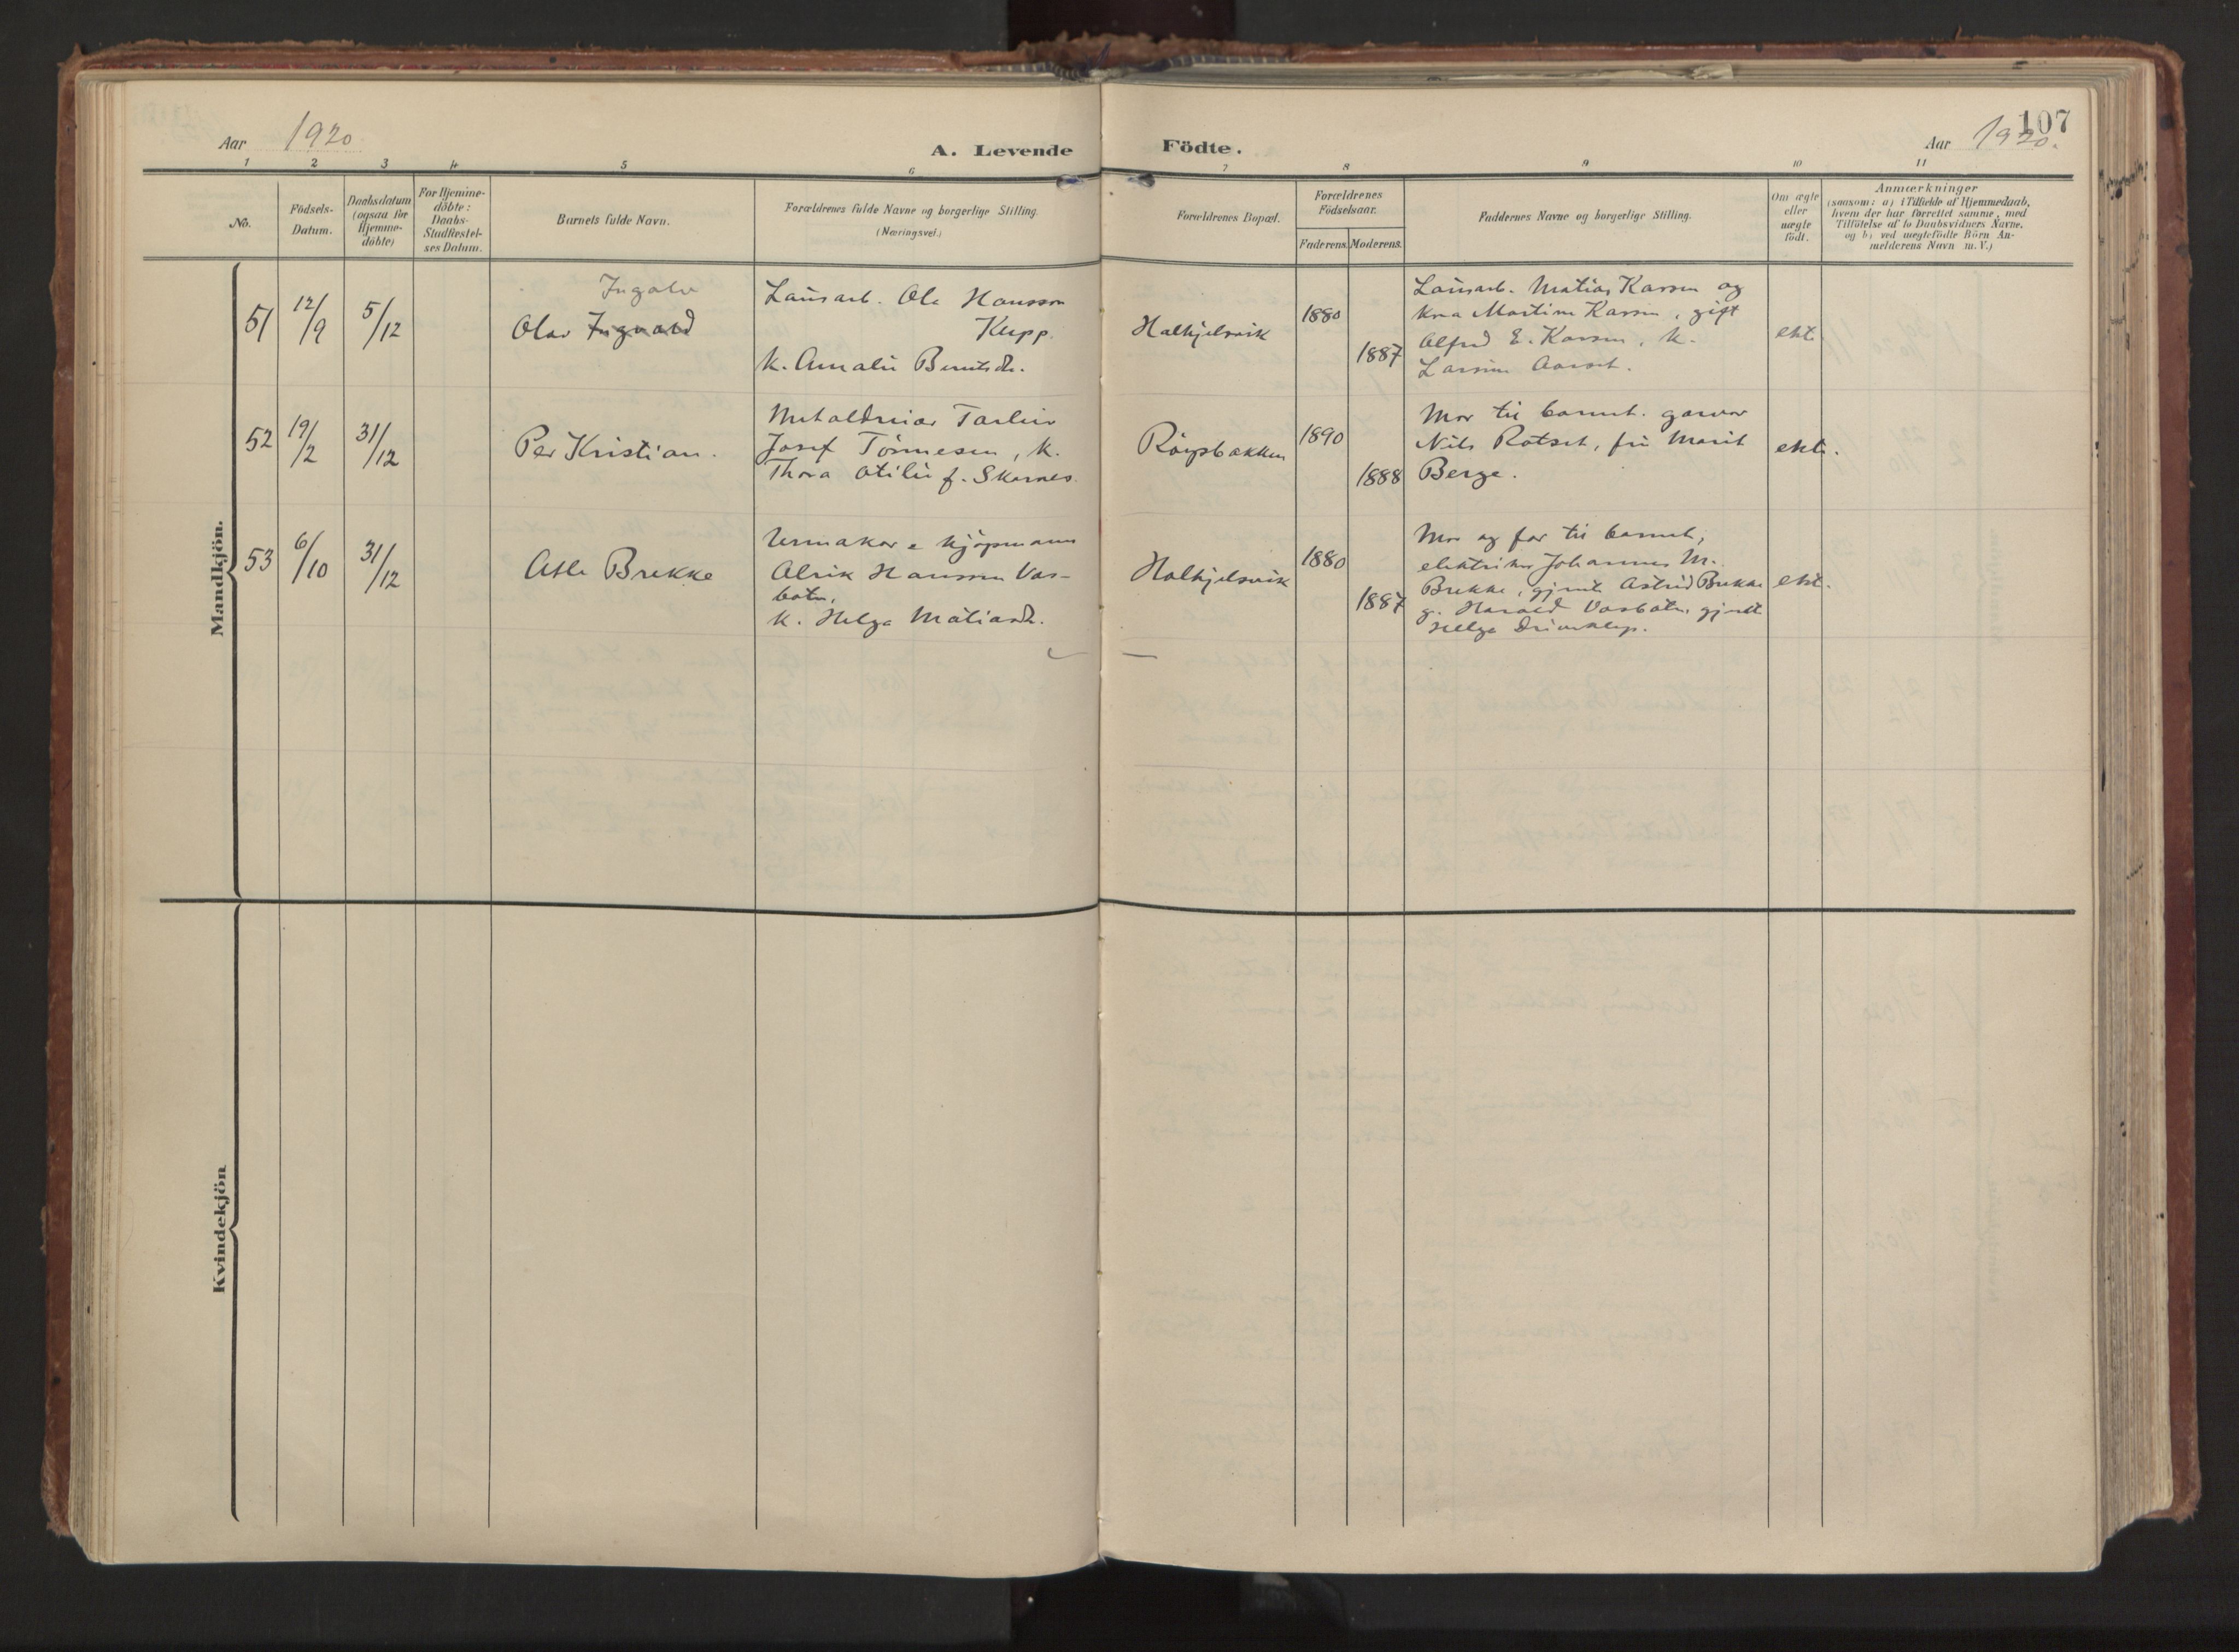 107
Aar 1920.
A. Levende Födte.
Aar 1920.
1 2 3 4 5 6 7 8 9 10 11
No.
Födsels-
Datum.
Daabsdatum
(ogsaa for
Hjemme-
döbte)
For Hjemme-
döbte:
Daabs-
Stadfestel-
ses Datum.
Barnets fulde Navn.
Forældrenes fulde Navne og borgerlige Stilling.
(Næringsvei.)
Forældrenes Bopæl.
Forældrenes
Födselsaar.
Faderens. Moderens.
Faddernes Navne og borgerlige Stilling.
Om ægte
eller
uægte
födt.
Anmærkninger
(saasom: a) i Tilfælde af Hjemmedaab,
hvem der har forrettet samme, med
Tilföielse af to Daabsvidners Navne,
og b) ved uægtefödte Börn An-
melderens Navn m. V.)
Mandkjön.
51 12/9 5/12
Ingolv
Olav Ingvald
Lausarb. Ole Hansson
Kupp.
k. Amalie Berntsdr.
Halkjelsvik
1880
1887
Lausarb. Matias Karsen og
kna Martine Karsen, gift
Alfred E. Karsen, k.
Larsine Aarset.
ekte
52 19/2 31/12
Per Kristian.
Metaldreiar
Josef Tönnesen, k.
Thora Otilie f. Skarnes.
Röysbakken
1890
1888
Mor til barnet. garvar
Nils Rotset, frú Marit
Berge.
ekte.
53 6/10 31/12
Atle Brekke
Urmakar e kjöpmann
Alrik Hansson Vas-
botn,
k. Helga Matiasdr.
Halkjelsvik
1880
1887
Mor og far til barnet,
elektriker Johannes M.
Brekke, gjente Astrid Brekke
g. Harald Vasbotn, gjente
Helga
ekte.
Kvindekjön